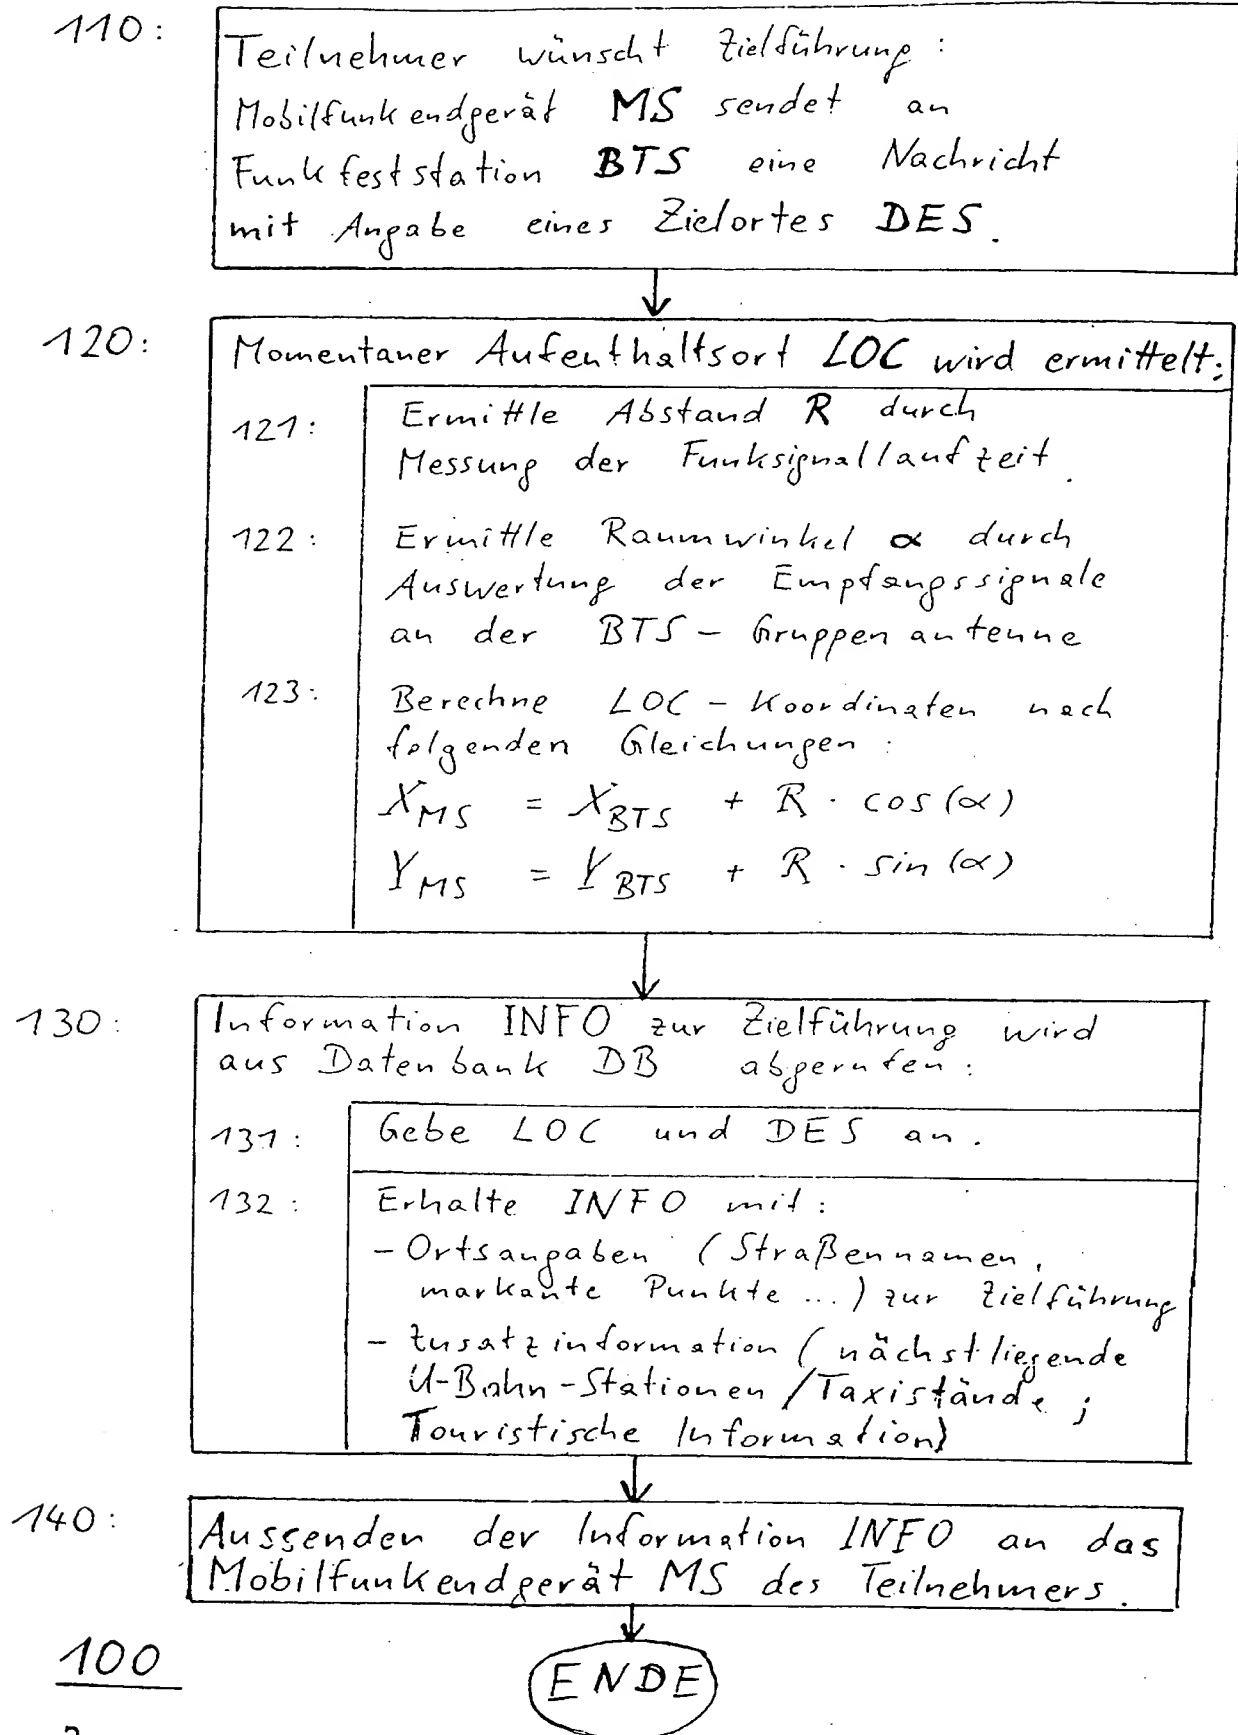 110:
Teilnehmer wünscht Zielführung:
Mobilfunkendgerät MS sendet an
Funkfeststation BTS eine Nachricht
mit Angabe eines Zielortes DES.
120:
Momentaner Aufenthaltsort LOC wird ermittelt:
121:
Ermittle Abstand R durch
Messung der Funksignallaufzeit.
122:
Ermittle Raumwinkel α durch
Auswertung der Empfangssignale
an der BTS - Gruppenantenne
123:
Berechne LOC - Koordinaten nach
folgenden Gleichungen:
X_MS = X_BTS + R · cos(α)
Y_MS = Y_BTS + R · sin(α)
130:
Information INFO zur Zielführung wird
aus Datenbank DB abgerufen:
131:
Gebe LOC und DES an.
132:
Erhalte INFO mit:
- Ortsangaben (Straßennamen,
markante Punkte ...) zur Zielführung
- Zusatzinformation (nächstliegende
U-Bahn-Stationen/Taxistände;
Touristische Information)
140:
Aussenden der Information INFO an das
Mobilfunkendgerät MS des Teilnehmers.
100
ENDE